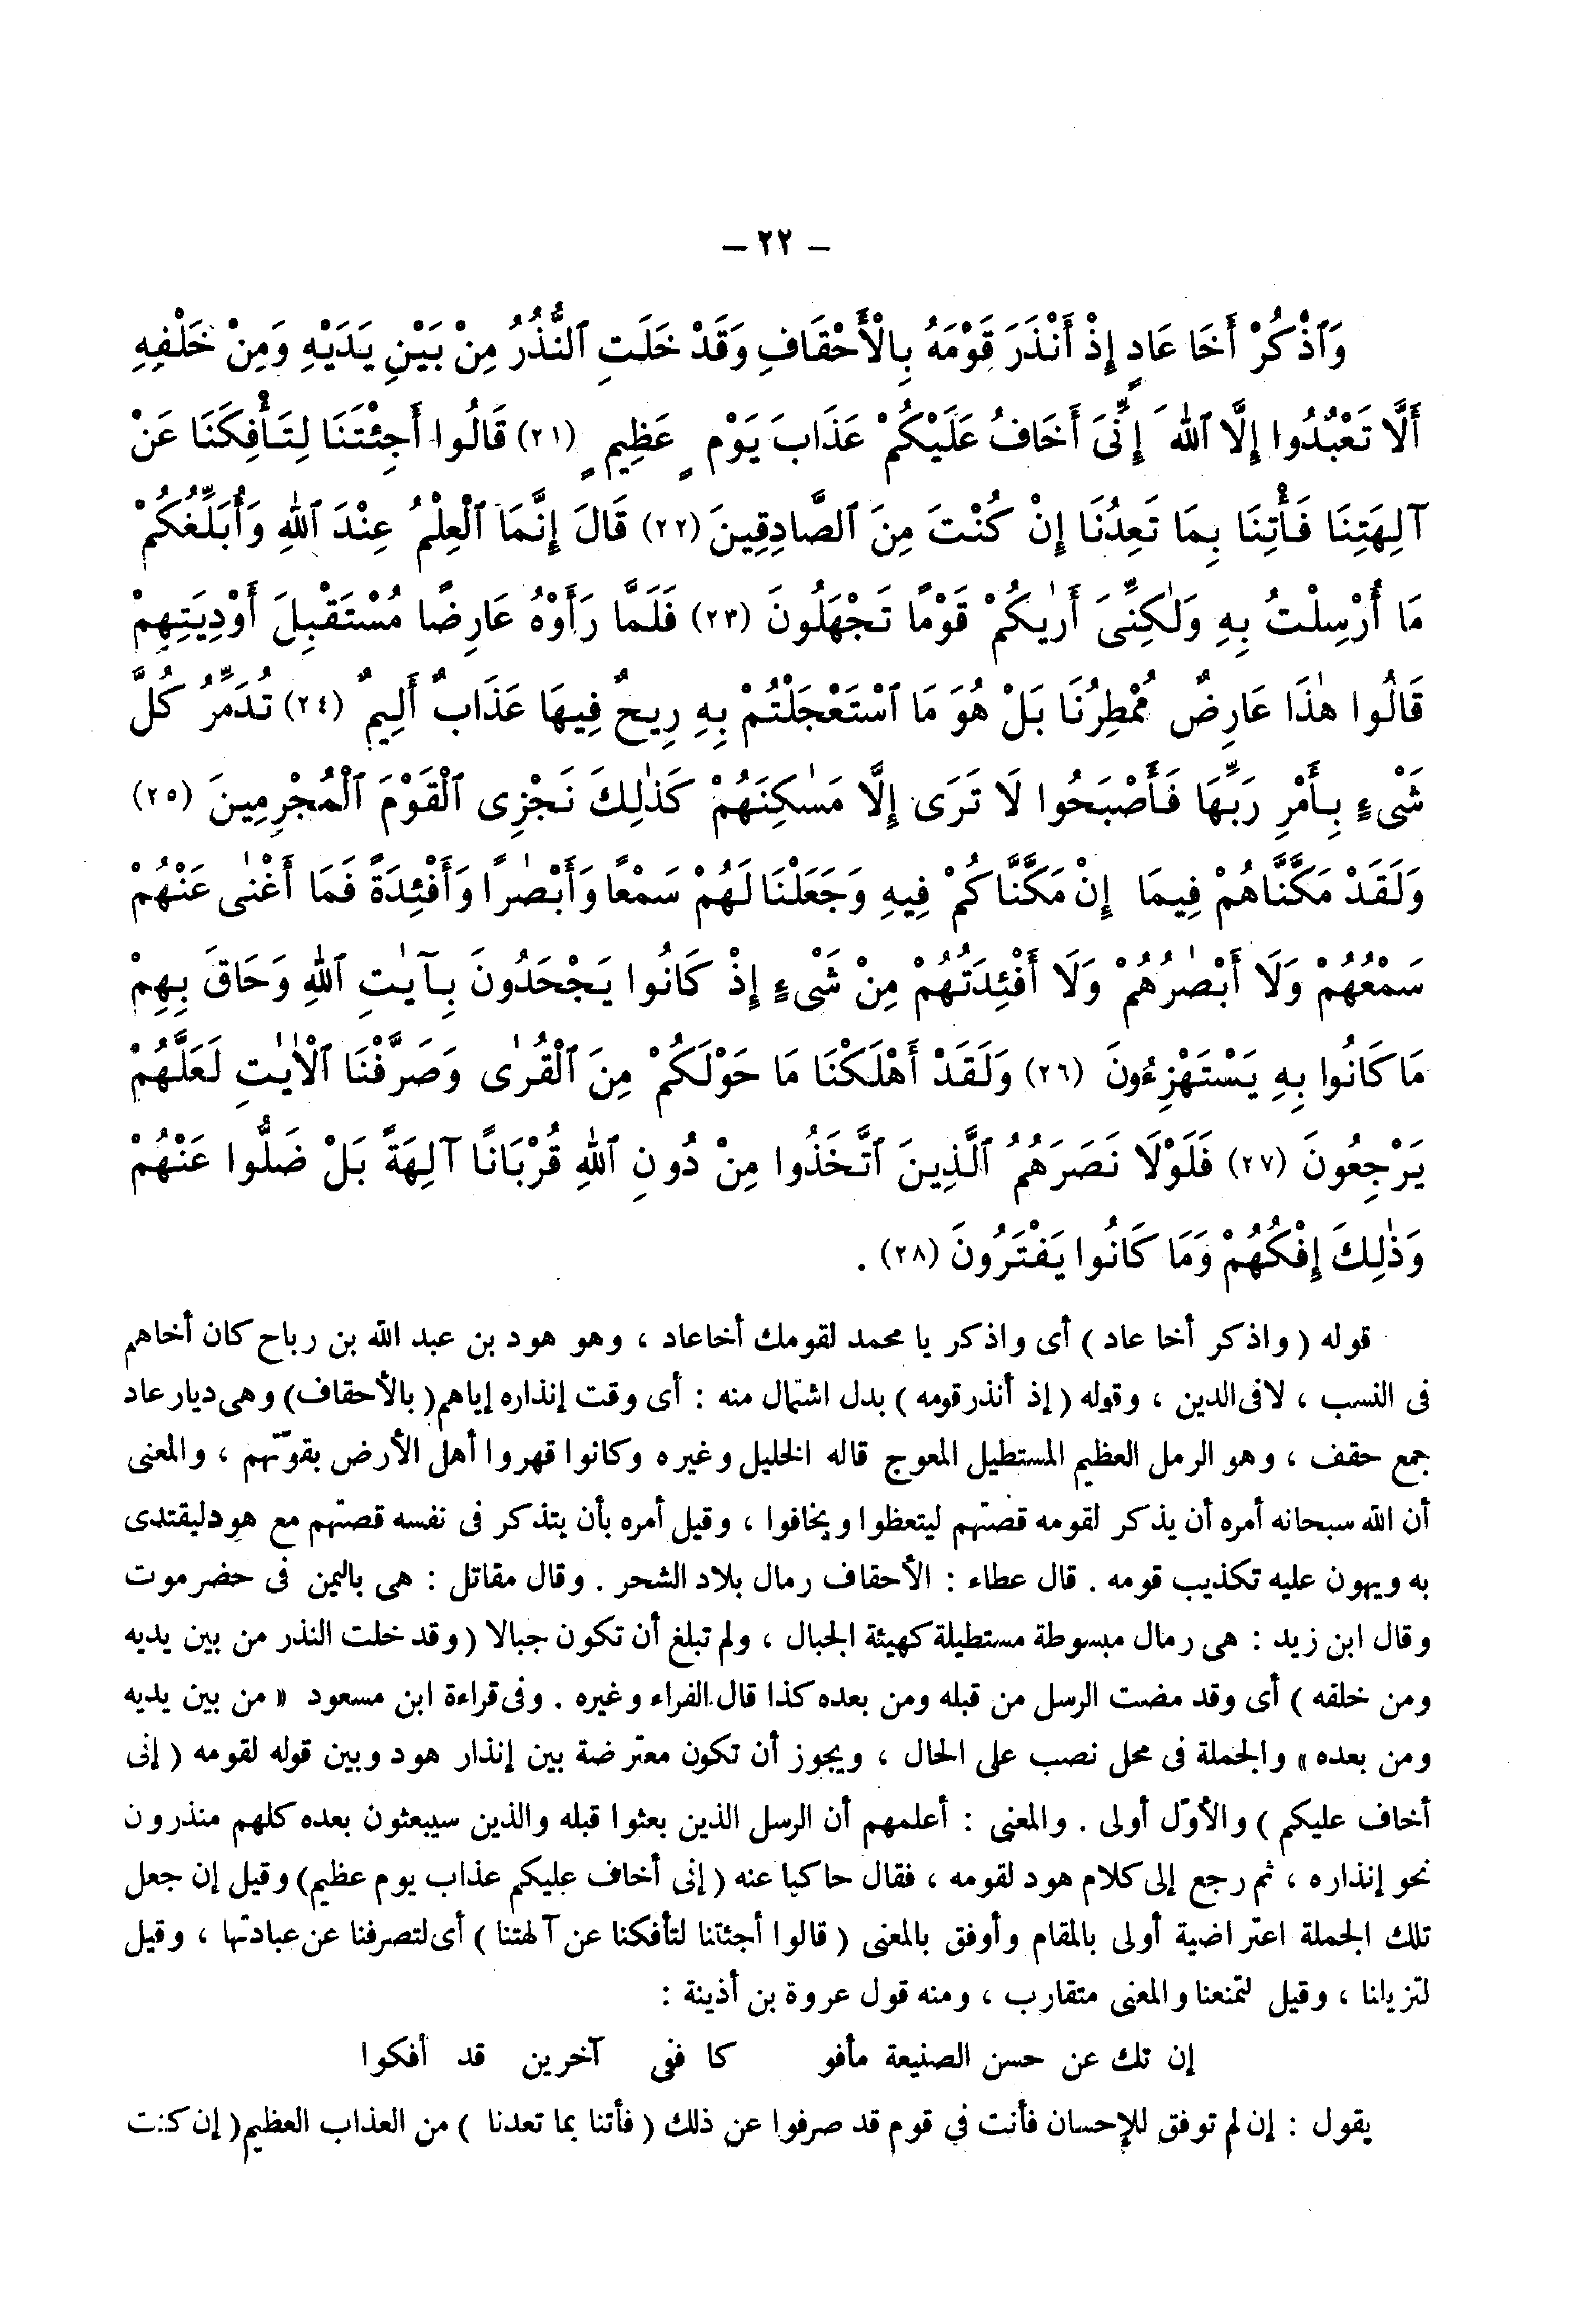 - ٢٢ -
وَٱذْكُرْ أَخَا عَادٍ إِذْ أَنْذَرَ قَوْمَهُ بِالْأَحْقَافِ وَقَدْ خَلَتِ ٱلنُّذُرُ مِنْ بَيْنِ يَدَيْهِ وَمِنْ خَلْفِهِ
أَلَّا تَعْبُدُوا إِلَّا ٱللهَ إِنِّىَ أَخَافُ عَلَيْكُمْ عَذَابَ يَوْمٍ عَظِيمٍ (٢١) قَالُوا أَجِئْتَنَا لِتَأْفِكَنَا عَنْ
آلِهَتِنَا فَأْتِنَا بِمَا تَعِدُنَا إِنْ كُنْتَ مِنَ ٱلصَّادِقِينَ (٢٢) قَالَ إِنَّمَا ٱلْعِلْمُ عِنْدَ ٱللهِ وَأُبَلِّغُكُمْ
مَا أُرْسِلْتُ بِهِ وَلٰكِنِّىَ أَرٰيكُمْ قَوْمًا تَجْهَلُونَ (٢٣) فَلَمَّا رَأَوْهُ عَارِضًا مُسْتَقْبِلَ أَوْدِيَتِهِمْ
قَالُوا هٰذَا عَارِضٌ مُمْطِرُنَا بَلْ هُوَ مَا ٱسْتَعْجَلْتُمْ بِهِ رِيحٌ فِيهَا عَذَابٌ أَلِيمٌ (٢٤) تُدَمِّرُ كُلَّ
شَىْءٍ بِأَمْرِ رَبِّهَا فَأَصْبَحُوا لَا تَرَى إِلَّا مَسٰكِنَهُمْ كَذٰلِكَ نَجْزِى ٱلْقَوْمَ ٱلْمُجْرِمِينَ (٢٥)
وَلَقَدْ مَكَّنَّاهُمْ فِيمَا إِنْ مَكَّنَّاكُمْ فِيهِ وَجَعَلْنَا لَهُمْ سَمْعًا وَأَبْصٰرًا وَأَفْئِدَةً فَمَا أَغْنٰى عَنْهُمْ
سَمْعُهُمْ وَلَا أَبْصٰرُهُمْ وَلَا أَفْئِدَتُهُمْ مِنْ شَىْءٍ إِذْ كَانُوا يَجْحَدُونَ بِآيٰتِ ٱللهِ وَحَاقَ بِهِمْ
مَا كَانُوا بِهِ يَسْتَهْزِءُونَ (٢٦) وَلَقَدْ أَهْلَكْنَا مَا حَوْلَكُمْ مِنَ ٱلْقُرٰى وَصَرَّفْنَا ٱلْاٰيٰتِ لَعَلَّهُمْ
يَرْجِعُونَ (٢٧) فَلَوْلَا نَصَرَهُمُ ٱلَّذِينَ ٱتَّخَذُوا مِنْ دُونِ ٱللهِ قُرْبَانًا آلِهَةً بَلْ ضَلُّوا عَنْهُمْ
وَذٰلِكَ إِفْكُهُمْ وَمَا كَانُوا يَفْتَرُونَ (٢٨) .
قوله ( واذكر أخا عاد ) أى واذكر يا محمد لقومك أخاعاد ، وهو هود بن عبد الله بن رباح كان أخاهم
فى النسب ، لا فى الدين ، وقوله ( إذ أنذر قومه ) بدل اشتمال منه : أى وقت إنذاره إياهم ( بالأحقاف ) وهى ديار عاد
جمع حقف ، وهو الرمل العظيم المستطيل المعوج قاله الخليل وغيره وكانوا قهروا أهل الأرض بقوّتهم ، والمعنى
أن الله سبحانه أمره أن يذكر لقومه قصتهم ليتعظوا ويخافوا ، وقيل أمره بأن يتذكر فى نفسه قصتهم مع هود ليقتدى
به ويهون عليه تكذيب قومه . قال عطاء : الأحقاف رمال بلاد الشحر . وقال مقاتل : هى باليمن فى حضرموت
وقال ابن زيد : هى رمال مبسوطة مستطيلة كهيئة الجبال ، ولم تبلغ أن تكون جبالا ( وقد خلت النذر من بين يديه
ومن خلفه ) أى وقد مضت الرسل من قبله ومن بعده كذا قال الفراء وغيره . وفى قراءة ابن مسعود « من بين يديه
ومن بعده » والجملة فى محل نصب على الحال ، ويجوز أن تكون معترضة بين إنذار هود وبين قوله لقومه ( إنى
أخاف عليكم ) والأوّل أولى . والمعنى : أعلمهم أن الرسل الذين بعثوا قبله والذين سيبعثون بعده كلهم منذرون
نحو إنذاره ، ثم رجع إلى كلام هود لقومه ، فقال حاكيا عنه ( إنى أخاف عليكم عذاب يوم عظيم ) وقيل إن جعل
تلك الجملة اعتراضية أولى بالمقام وأوفق بالمعنى ( قالوا أجئتنا لتأفكنا عن آلهتنا ) أى لتصرفنا عن عبادتها ، وقيل
لتزيلنا ، وقيل لتمنعنا والمعنى متقارب ، ومنه قول عروة بن أذينة :
إن تك عن حسن الصنيعة مأفو كا ففى آخرين قد أفكوا
يقول : إن لم توفق للإحسان فأنت في قوم قد صرفوا عن ذلك ( فأتنا بما تعدنا ) من العذاب العظيم ( إن كنت